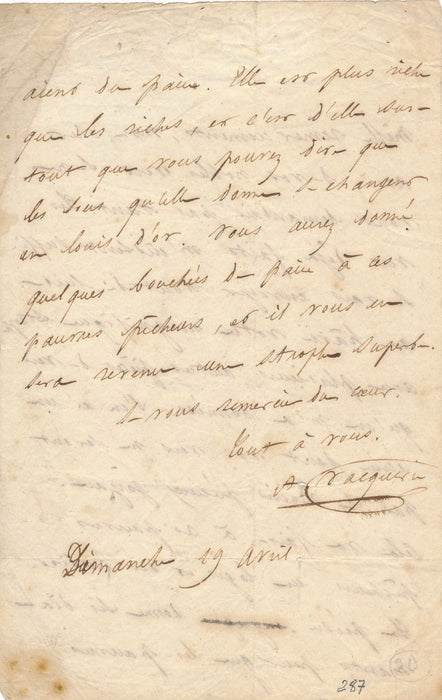 aient du pain. Elle est plus riche
que les riches et c'est d'elle sur-
tout que vous pouvez dire que
les sous qu'elle donne se changent
en louis d'or. Vous aurez donné
quelques bouchées de pain à ces
pauvres pêcheurs, et il vous en
sera revenu une strophe superbe.
Je vous remercie du cœur.
Tout à vous.
A Vacquerie
Dimanche 19 avril.
20
287